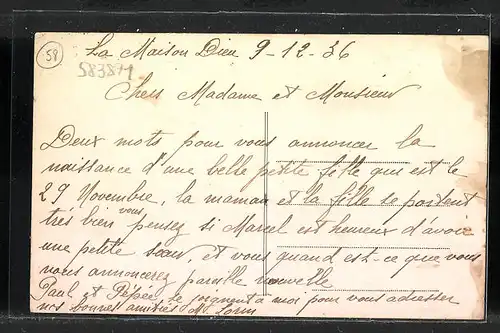 58
La Maison Dieu 9-12-36
583871
Chers Madame et Monsieur
Deux mots pour vous annoncer la
naissance d'une belle petite fille qui est le
29 Novembre, la maman et la fille se portent
très bien vous pensez si Marcel est heureux d'avoir
une petite soeur, et vous quand est-ce que vous
nous annoncerez pareille nouvelle
Paul et Pépée se joignent a moi pour vous adresser
nos bonnes amitiés